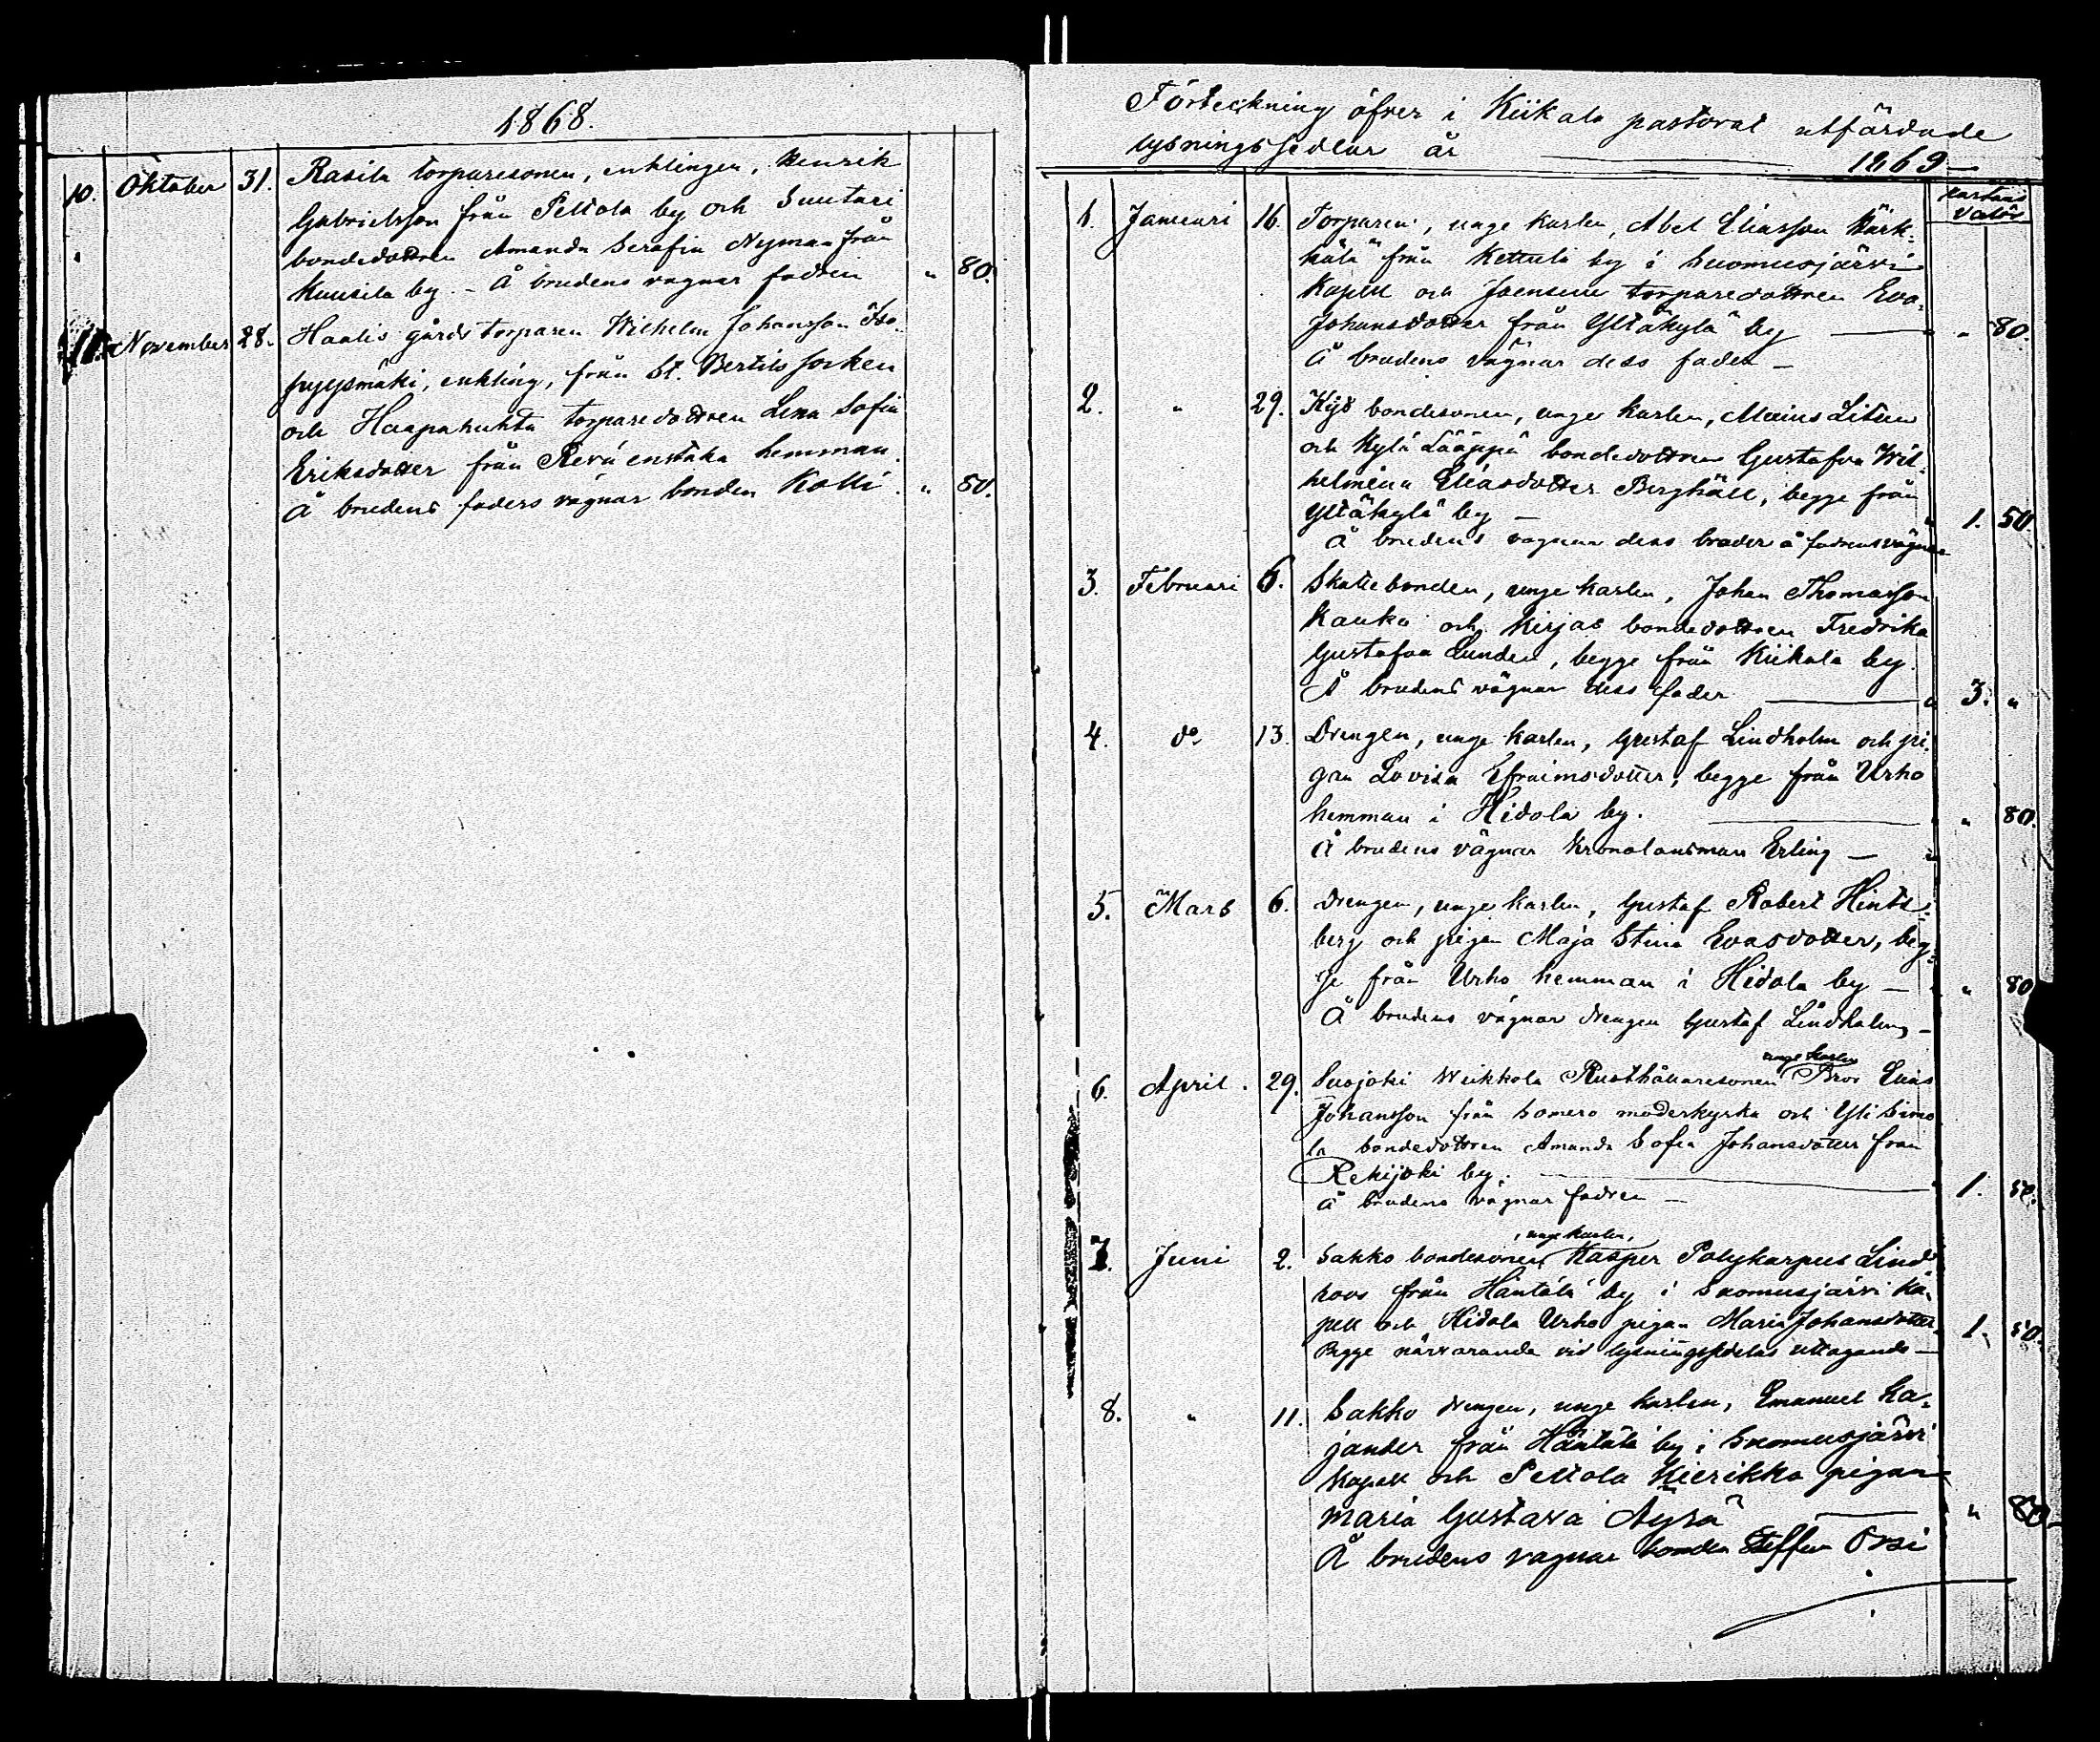 1868.
10. Oktober 31. Rasila torparesonen, enklingen, Henrik
Gabrielsson från Peltola by och Suutari
bondedottren Amanda Serafia Nyman från
Kuusila by - Å brudens vägnar fadren " 80.
11. November 28. Haalis gårds torparen Wilhelm Johansson Iso-
pyysmäki, enkling, från St. Bertils socken
och Haapahuhta torparedottren Lena Sofia
Eriksdotter från enstaka hemman.
Å brudens faders vägnar bonden Kolli. " 80.
Förteckning öfver i Kiikala pastorat utfärdade
lysningssedlar år 1869
Kartans
Valör
1. Januari 16. Torparen, unge karlen, Abel Eliasson Kärk-
kälä från Kettula by i Suomusjärvi
Kapell och Joensuu torparedottren Eva
Johansdotter från Yltäkylä by " 80.
Å brudens vägnar dess fader -
2. " 29. Kyö bondesonen, unge karlen, Litun
och Kylä Lääppä bondedottren Gustafva Wil-
helmina Eliasdotter Berghäll, begge från
Yltäkylä by - " 1. 50.
Å brudens vägnar dess broder å fadrens vägnar
3. Februari 6. Skattebonden, unge karlen, Johan Thomasson
Kauko och Kirjas bondedottren Fredrika
Gustafva Lunden, begge från Kiikala by.
Å brudens vägnar dess fader " 3. "
4. do 13. Drengen, unge karlen, Gustaf Lindholm och pi-
gan Lovisa Efraimsdotter, begge från Urho
hemman i Hidola by. " 80.
Å brudens vägnar Kronolänsman Erling - "
5. Mars 6. Drengen, unge karlen, Gustaf Robert Hints-
berg och pigan Maja Stina Evasdotter, beg-
ge från Urho hemman i Hidola by - " 80
Å brudens vägnar drengen Gustaf Lindholm -
unge karlen
6. April. 29. Suojoki Weikkola Rusthållaresonen Bror Elias
Johansson från Somero moderkyrka och Yli Simo
la bondedottren Amanda Sofia Johansdotter från
Rekijoki by. 1. 50.
Å brudens vägnar fadren -
, unge karlen,
7. Juni 2. Sakko bondesonen Kasper Polykarpus Lind
roos från Häntälä by i Suomusjärvi ka-
pell och Hidola Urho pigan Maria Johansdotter. 1. 50.
Begge närvarande vid lysningssedelns uttagande -
8. " 11. Sakko drengen, unge karlen, Emanuel Ka-
jander från Häntälä by i Suomusjärvi
Kapell och Peltola Kierikka pigan
Maria Gustava Äyrä " 80
Å brudens vägnar bonden Steffen Orsi